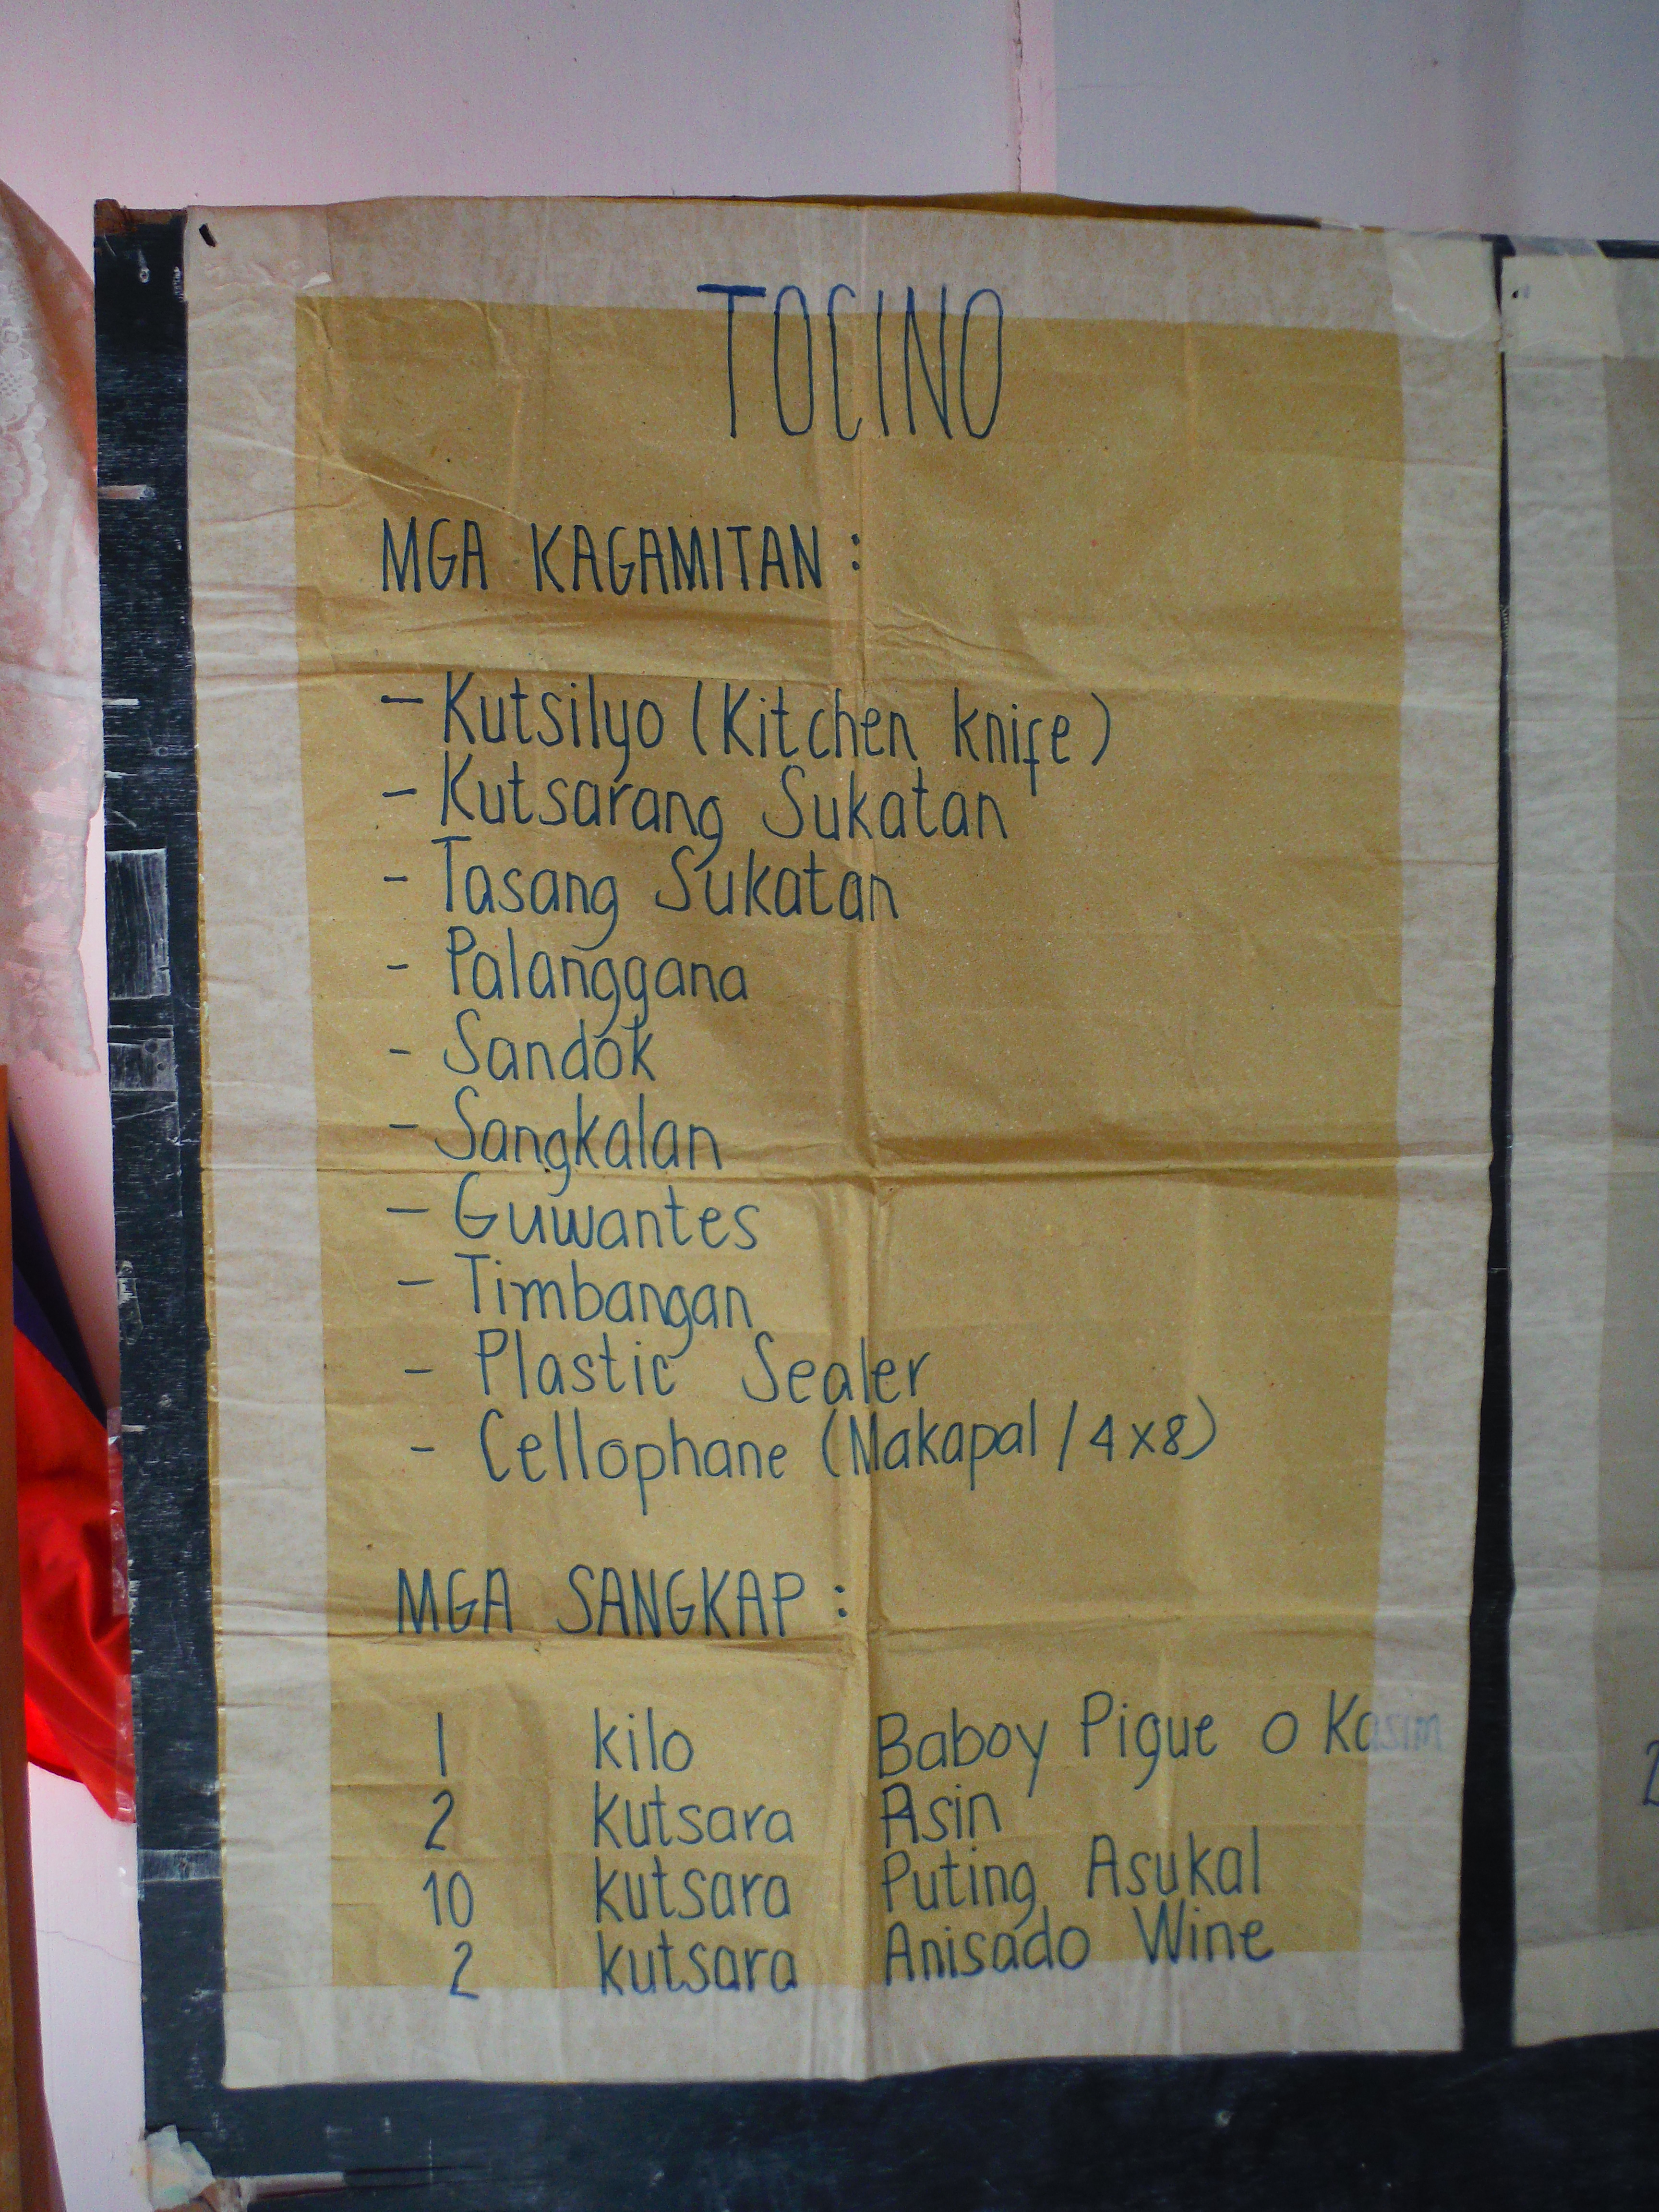 TOCINO
MGA KAGAMITAN :
- Kutsilyo (Kitchen knife)
- Kutsarang Sukatan
- Tasang Sukatan
- Palanggana
- Sandok
- Sangkalan
- Guwantes
- Timbangan
- Plastic Sealer
- Cellophane (Makapal / 4x8)
MGA SANGKAP :
1 kilo Baboy Pigue o Kasim
2 kutsara Asin
10 kutsara Puting Asukal
2 kutsara Anisado Wine
2